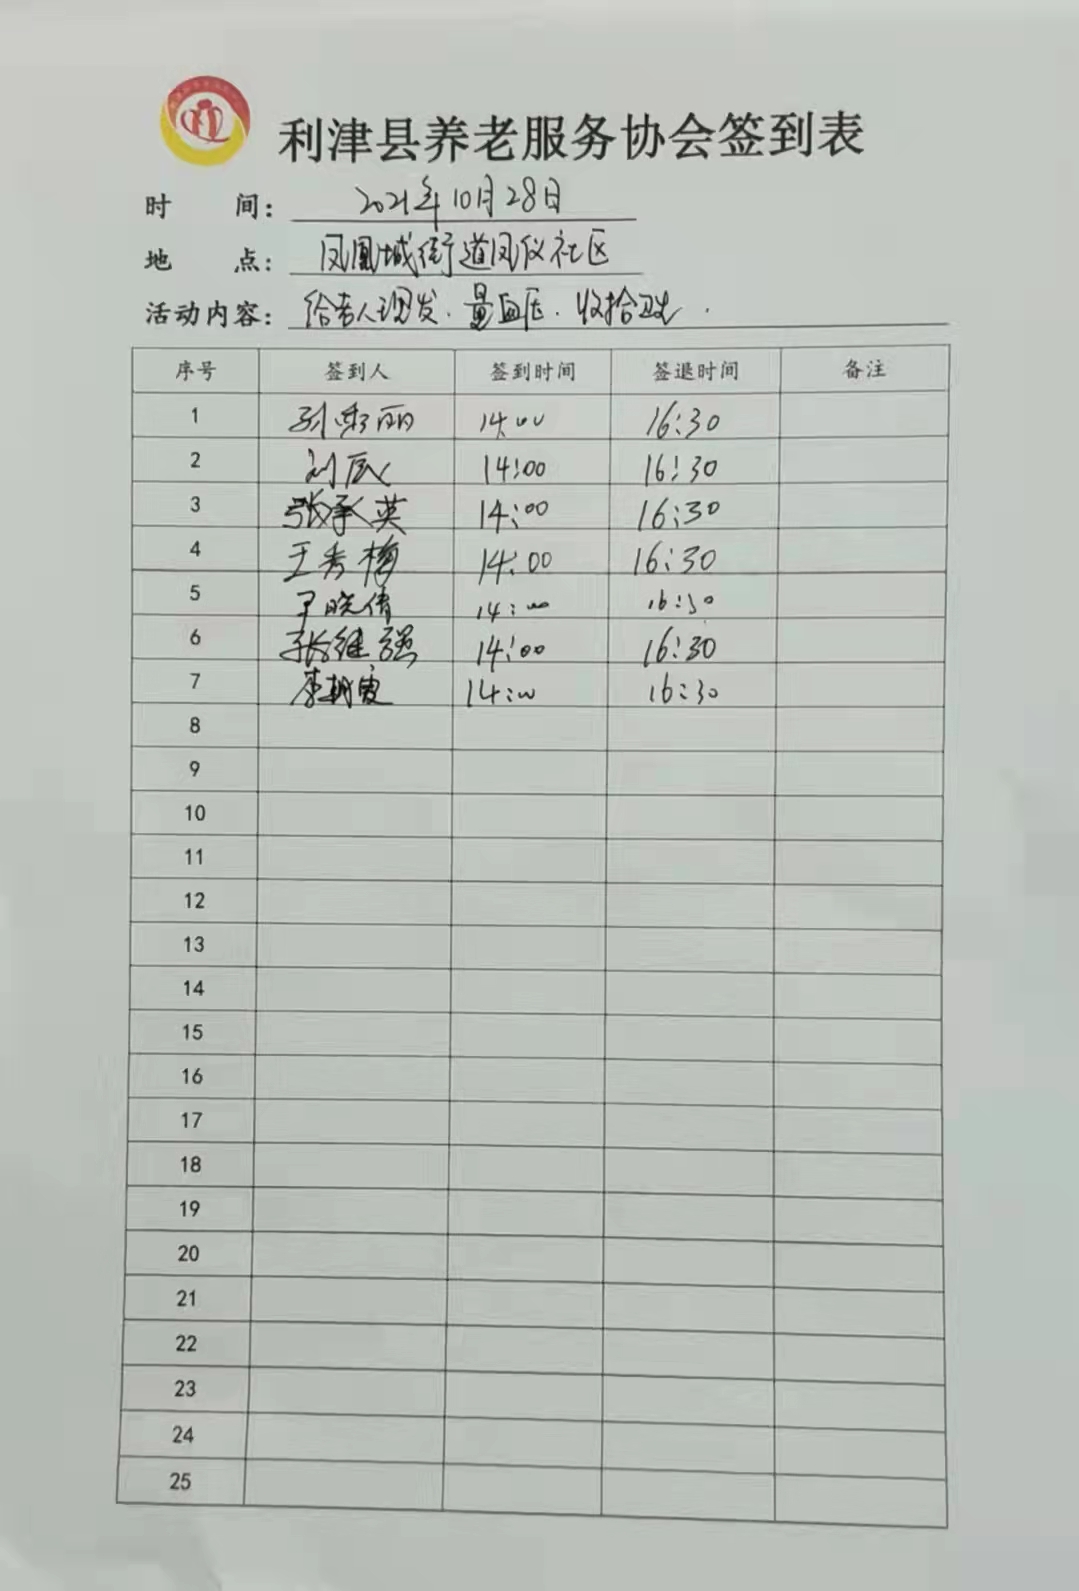 利津县养老服务协会签到表
时 间: 2021年10月28日
地 点: 凤凰城街道凤仪社区
活动内容: 给老人理发. 量血压. 收拾卫生.
序号 签到人 签到时间 签退时间 备注
1 丽 14:00 16:30
2 刘 14:00 16:30
3 张承英 14:00 16:30
4 王秀梅 14:00 16:30
5 尹晓倩 14:00 16:30
6 张继强 14:00 16:30
7 李 14:00 16:30
8
9
10
11
12
13
14
15
16
17
18
19
20
21
22
23
24
25